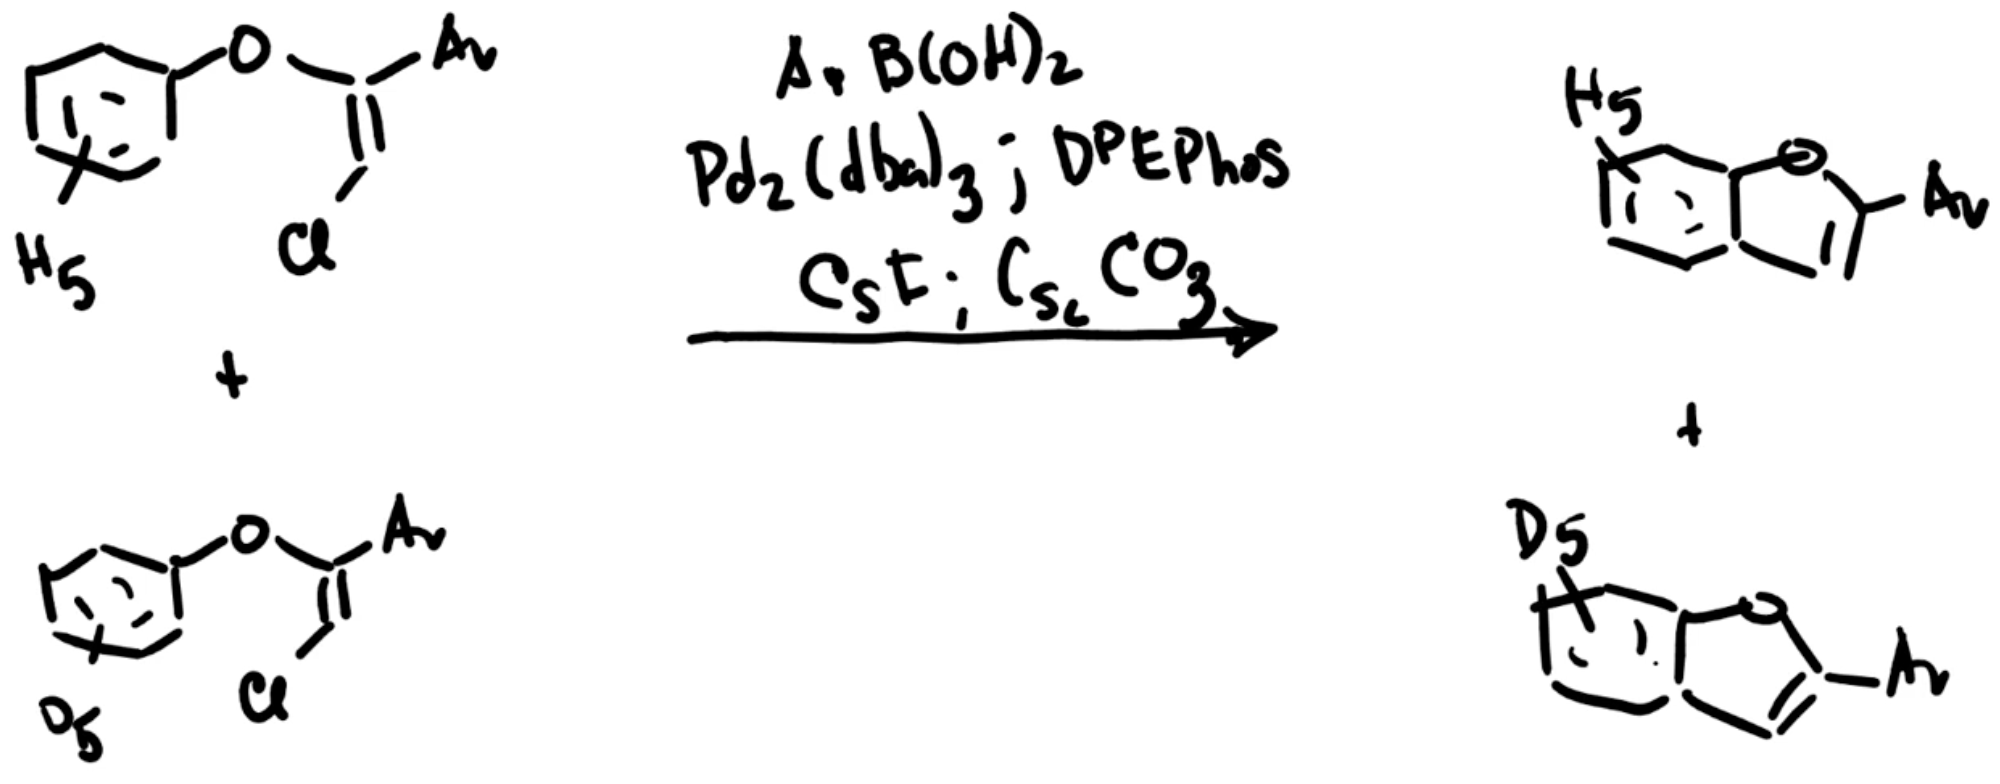 O Ar
Cl
H5
+
O Ar
Cl
D5
Ar B(OH)2
Pd2(dba)3 ; DPEPhos
CsF ; Cs2CO3
H5
O
Ar
+
D5
O
Ar